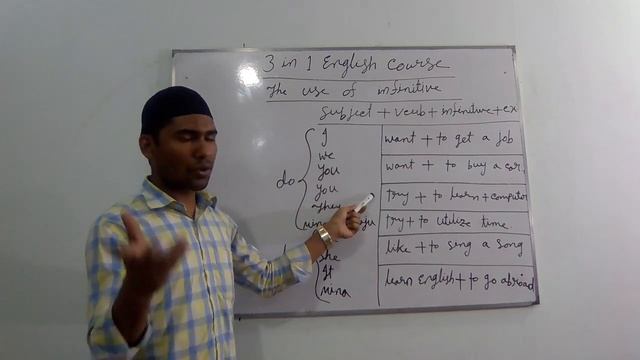 3 in 1 English Course
The use of infinitive
Subject + verb + infinitive + ex
do
I
we
You
You
They
want + to get a job
want + to buy a car.
try + to learn + computer
try + to utilize time.
like + to sing a song
learn English + to go abroad
she
It
mina